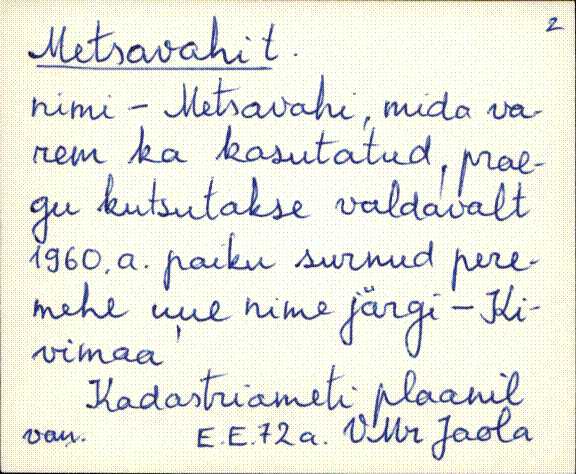 2
Metsavahi t.
nimi - Metsavahi, mida va-
rem ka kasutatud, prae-
gu kutsutakse valdavalt
1960. a. paiku surnud pere-
mehe uue nime järgi - Ki-
vimaa
Kadastriameti plaanil
van. E.E.72a. VMr Jaola